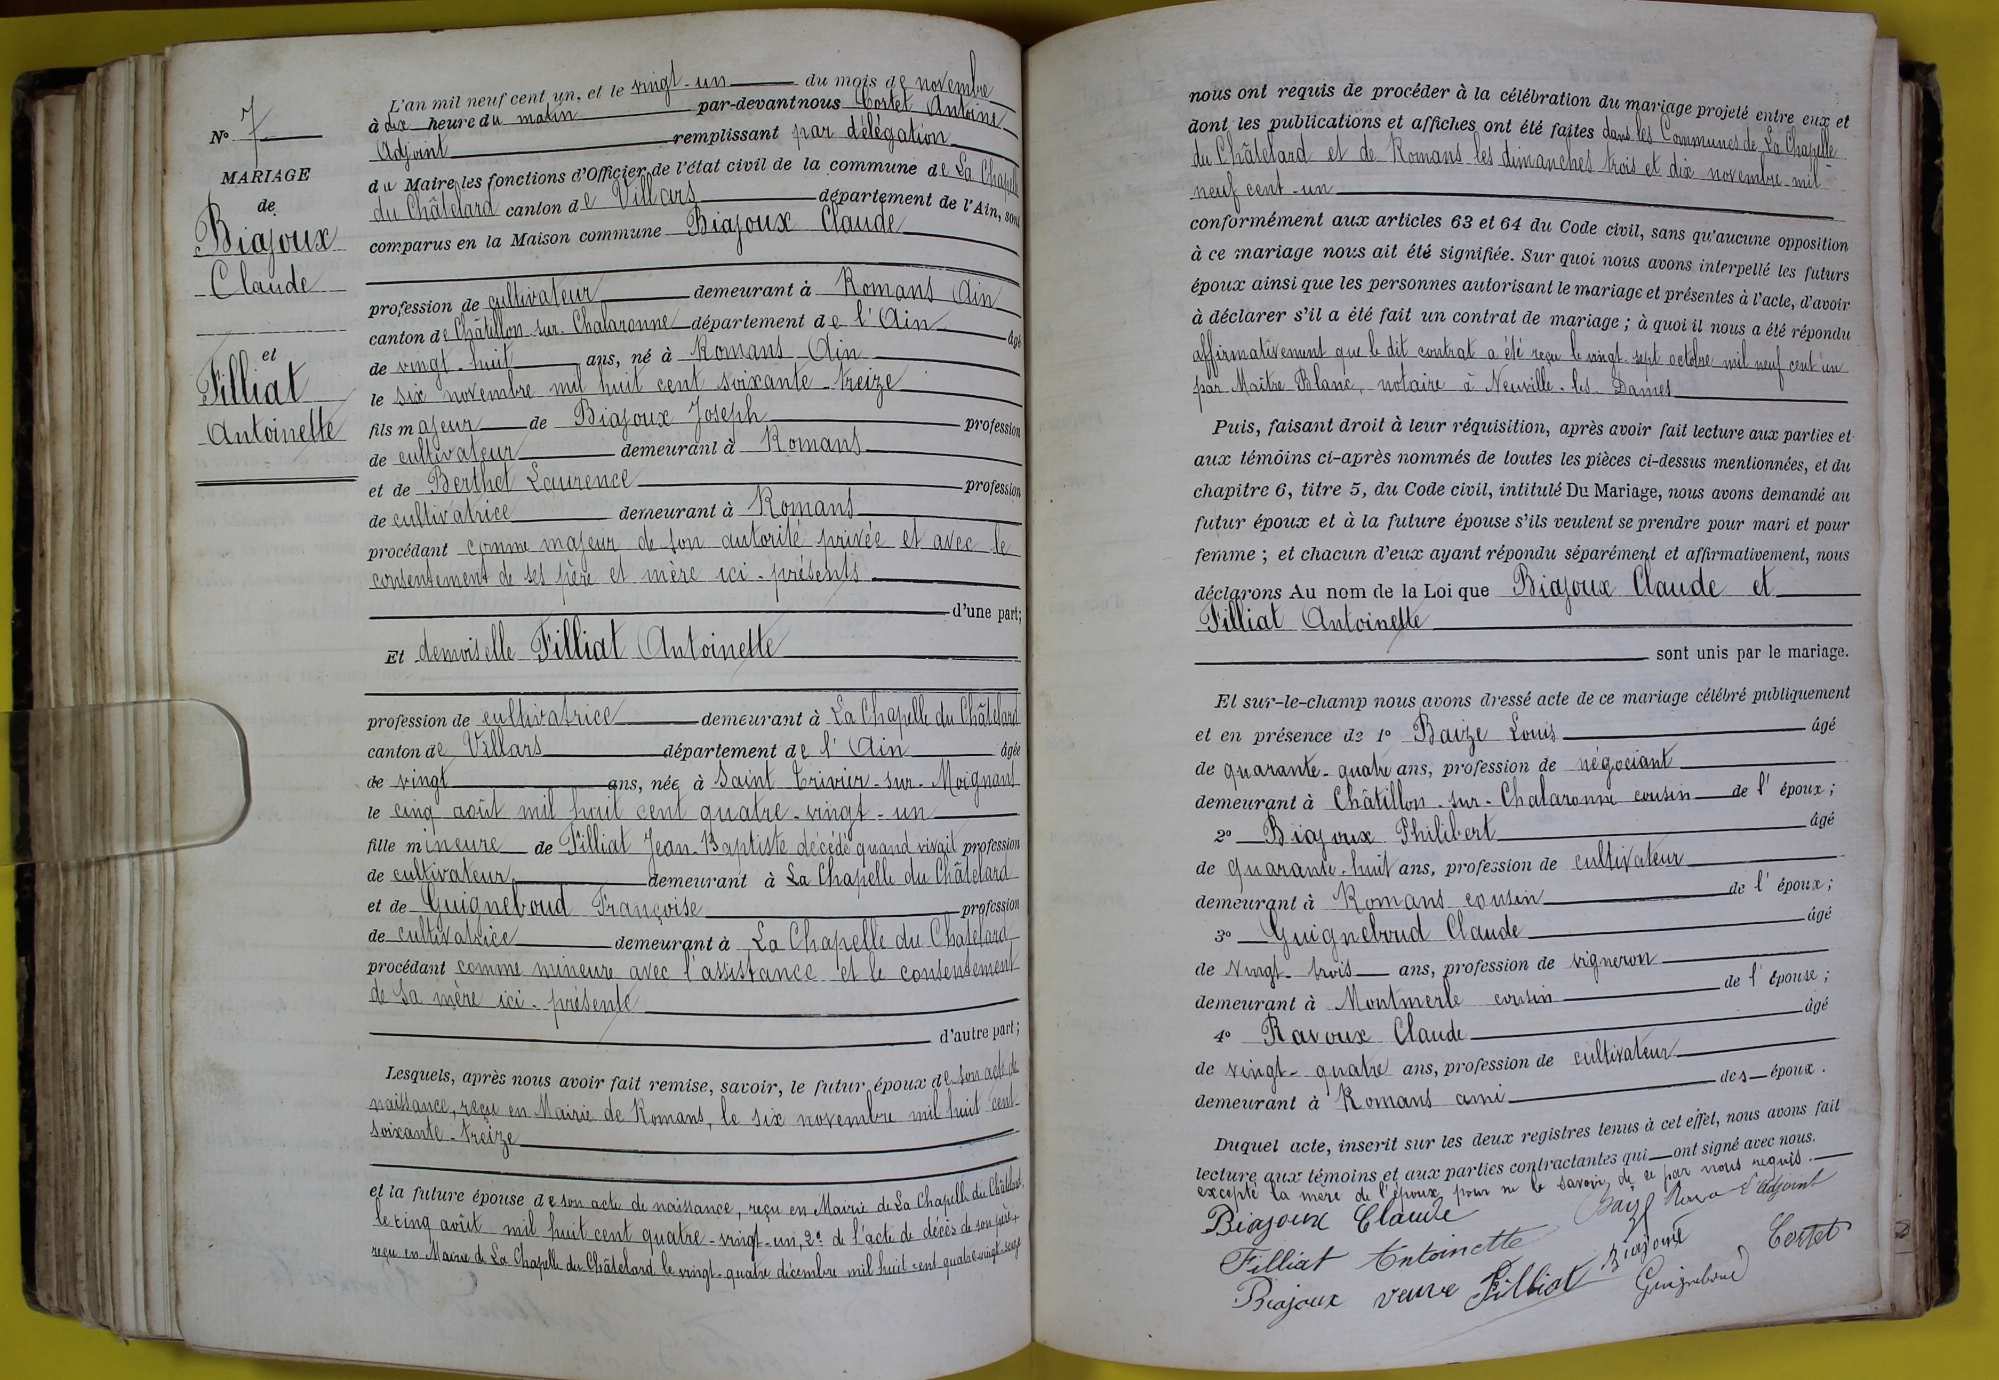 N° 7
MARIAGE
de
Biajoux
Claude
et
Filliat
Antoinette
L'an mil neuf cent un, et le vingt-un du mois de novembre
à dix heure du matin par-devant nous Cortet Antoine
Adjoint remplissant par délégation
du Maire les fonctions d'Officier de l'état civil de la commune de La Chapelle
du Châtelard canton de Villars département de l'Ain, sont
comparus en la Maison commune Biajoux Claude
profession de cultivateur demeurant à Romans Ain
canton de Châtillon-sur-Chalaronne département de l'Ain âgé
de vingt-huit ans, né à Romans Ain
le six novembre mil huit cent soixante-treize
fils majeur de Biajoux Joseph profession
de cultivateur demeurant à Romans
et de Berthet Laurence profession
de cultivatrice demeurant à Romans
procédant comme majeur de son autorité privée et avec le
consentement de ses père et mère ici-présents
d'une part;
Et demoiselle Filliat Antoinette
profession de cultivatrice demeurant à La Chapelle du Châtelard
canton de Villars département de l'Ain âgée
de vingt ans, née à Saint Trivier-sur-Moignans
le cinq août mil huit cent quatre-vingt-un
fille mineure de Filliat Jean-Baptiste décédé quand vivait profession
de cultivateur demeurant à La Chapelle du Châtelard
et de Guigneboud Françoise profession
de cultivatrice demeurant à La Chapelle du Chatelard
procédant comme mineure avec l'assistance et le consentement
de sa mère ici-présente
d'autre part;
Lesquels, après nous avoir fait remise, savoir, le futur époux de son acte de
naissance, reçu en Mairie de Romans, le six novembre mil huit cent
soixante-treize
et la future épouse de son acte de naissance, reçu en Mairie de La Chapelle du Châtelard,
le cinq août mil huit cent quatre-vingt-un, 2° de l'acte de décès de son père,
reçu en Mairie de La Chapelle du Châtelard le vingt-quatre décembre mil huit cent quatre-vingt-seize
nous ont requis de procéder à la célébration du mariage projeté entre eux et
dont les publications et affiches ont été faites dans les Communes de La Chapelle
du Châtelard et de Romans les dimanches trois et dix novembre mil
neuf cent-un
conformément aux articles 63 et 64 du Code civil, sans qu'aucune opposition
à ce mariage nous ait été signifiée. Sur quoi nous avons interpellé les futurs
époux ainsi que les personnes autorisant le mariage et présentes à l'acte, d'avoir
à déclarer s'il a été fait un contrat de mariage; à quoi il nous a été répondu
affirmativement que le dit contrat a été reçu le vingt-sept octobre mil neuf cent un
par Maître Blanc, notaire à Neuville-les-Dames
Puis, faisant droit à leur réquisition, après avoir fait lecture aux parties et
aux témoins ci-après nommés de toutes les pièces ci-dessus mentionnées, et du
chapitre 6, titre 5, du Code civil, intitulé Du Mariage, nous avons demandé au
futur époux et à la future épouse s'ils veulent se prendre pour mari et pour
femme; et chacun d'eux ayant répondu séparément et affirmativement, nous
déclarons Au nom de la Loi que Biajoux Claude et
Filliat Antoinette
sont unis par le mariage.
Et sur-le-champ nous avons dressé acte de ce mariage célébré publiquement
et en présence de 1° Baize Louis âgé
de quarante-quatre ans, profession de négociant
demeurant à Châtillon-sur-Chalaronne cousin de l'époux;
2° Biajoux Philibert âgé
de quarante-huit ans, profession de cultivateur
demeurant à Romans cousin de l'époux;
3° Guigneboud Claude âgé
de vingt-trois ans, profession de vigneron
demeurant à Montmerle cousin de l'épouse;
4° Ravoux Claude âgé
de vingt-quatre ans, profession de cultivateur
demeurant à Romans ami des époux.
Duquel acte, inscrit sur les deux registres tenus à cet effet, nous avons fait
lecture aux témoins et aux parties contractantes qui ont signé avec nous.
excepté la mère de l'époux pour ne le savoir, de ce par nous requis.
Biajoux Claude
L'adjoint
Filliat Antoinette
Biajoux
Cortet
Biajoux veuve Filliat
Guigneboud